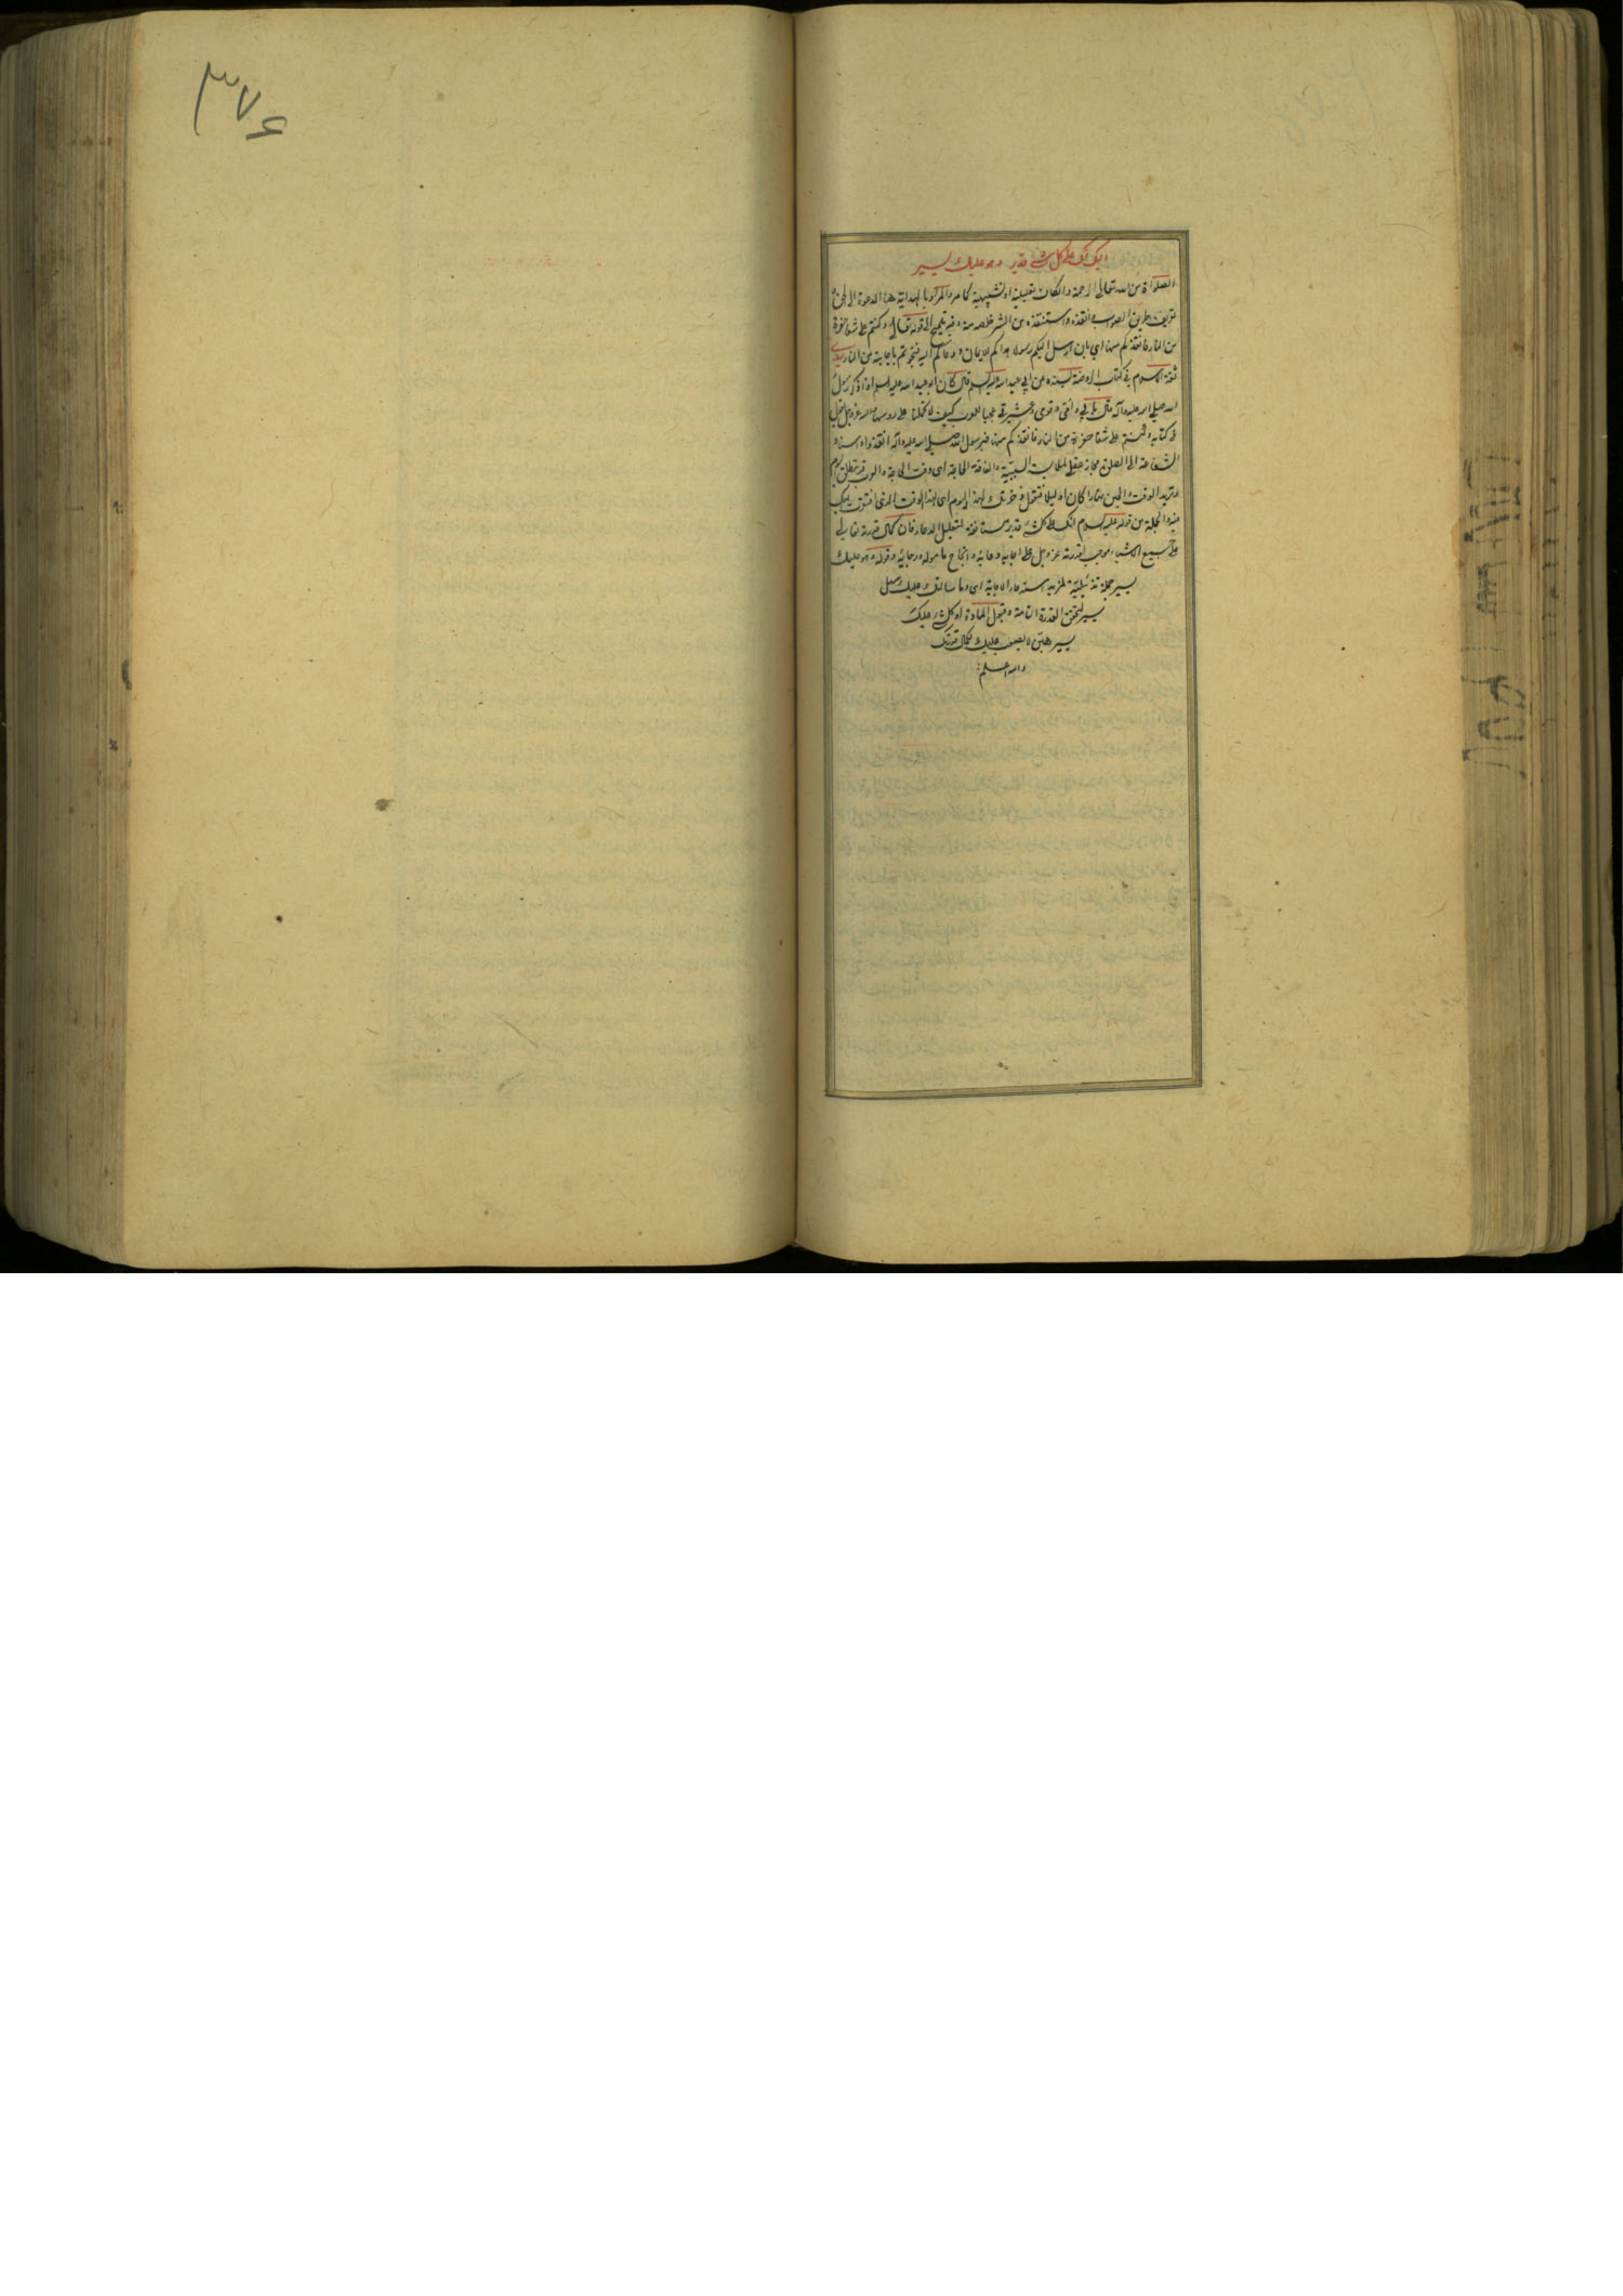 اليك انك على كل شئ قدير وهو عليك يسير
الصلوة من الله تعالى الرحمة والكاف تعليلية او تشبيهية كما مر والمراد بالهداية هنا الدعوة الى الحق و
تعريف طريق الصواب وانقذه واستنقذه من الشر خلصه منه وفيه تلميح الى قوله تعالى وكنتم على شفا حفرة
من النار فانقذكم منها اي بان ارسل اليكم رسولا هداكم للايمان ودعاكم اليه فنجوتم باجابته من النار روى
ثقة الاسلام في كتاب الروضة بسنده عن ابي عبد الله عليه السلم قال كان ابو عبد الله عليه السلم اذا ذكر رسول
الله صلى الله عليه وآله قال بابي وامي وقومي وعشيرتي عجبا للعرب كيف لا تحملنا على رؤسها والله عز وجل يقول
في كتابه وكنتم على شفا حفرة من النار فانقذكم منها فبرسول الله صلى الله عليه وآله انقذوا واسناد
الشفاعة الى الصلوة مجاز عقلي لملابسة السببية والفاقة الحاجة اى وقت الحاجة والعرب قد تطلق اليوم
وتريد الوقت والحين نهارا كان او ليلا فتقول ذخرتك لهذا اليوم اى لهذا الوقت الذى افتقرت اليك
فيه والجملة من قوله عليه السلام انك على كل شئ قدير مستانفة لتعليل الدعاء فان كمال قدرته تعالى
على جميع الاشياء موجب لقدرته عز وجل على اجابة دعائه وانجاح مأموله ورجائه وقوله وهو عليك
يسير جملة تذييلية لمزيد استدعاء الاجابة اى وما سالتك عليك سهل
يسير لتحقق القدرة التامة وقبول المادة او كل شئ عليك
يسير هين لا يصعب عليك لكمال قدرتك
والله اعلم
٣٧۶